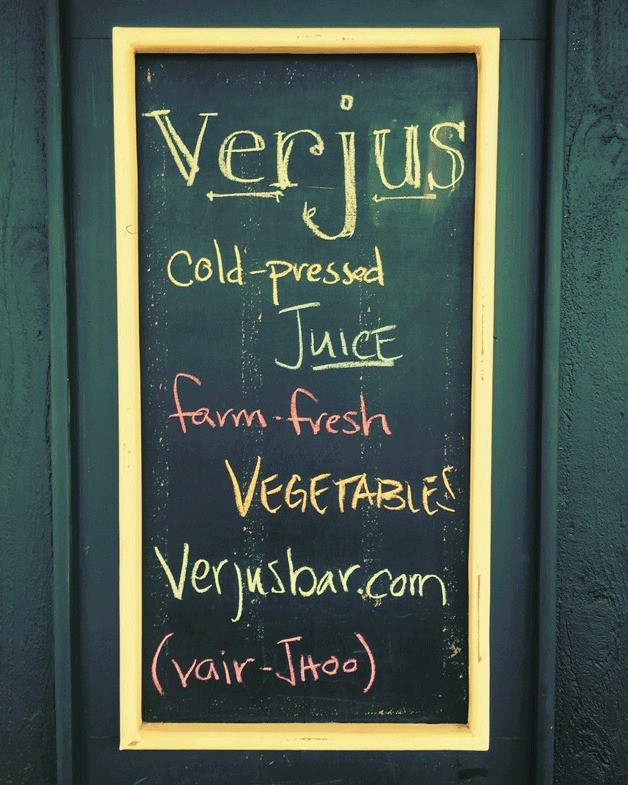 Verjus
cold-pressed
JUICE
farm-fresh
VEGETABLES
Verjusbar.com
(vair-JHOO)